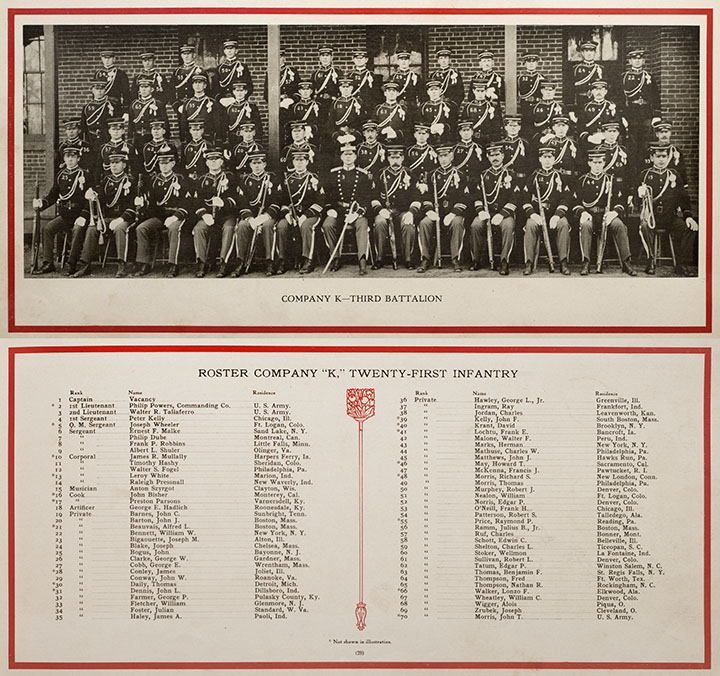 COMPANY K—THIRD BATTALION
ROSTER COMPANY "K," TWENTY-FIRST INFANTRY
Rank Name Residence
1 Captain Vacancy
*2 1st Lieutenant Philip Powers, Commanding Co. U. S. Army.
3 2nd Lieutenant Walter R. Taliaferro U. S. Army.
4 1st Sergeant Peter Kelly Chicago, Ill.
*5 Q. M. Sergeant Joseph Wheeler Ft. Logan, Colo.
6 Sergeant Ernest F. Malke Sand Lake, N. Y.
7 " Philip Dube Montreal, Can.
8 " Frank F. Robbins Little Falls, Minn.
9 " Albert L. Shuler Olinger, Va.
*10 Corporal James R. Mullally Harpers Ferry, Ia.
11 " Timothy Hashy Sheridan, Colo.
12 " Walter S. Fogel Philadelphia, Pa.
*13 " Leroy White Marion, Ind.
14 " Raleigh Pressnall New Waverly, Ind.
15 Musician Anton Szyrgot Clayton, Wis.
*16 Cook John Bisher Monterey, Cal.
*17 " Preston Parsons Varnersdell, Ky.
18 Artificer George E. Hadlich Roonesdale, Ky.
19 Private Barnes, John C. Sunbright, Tenn.
20 " Barton, John J. Boston, Mass.
*21 " Beauvais, Alfred L. Boston, Mass.
22 " Bennett, William W. New York, N. Y.
23 " Bigaouette, Joseph M. Alton, Ill.
24 " Blake, Joseph Chelsea, Mass.
25 " Bogus, John Bayonne, N. J.
26 " Clarke, George W. Gardner, Mass.
27 " Cobb, George E. Wrentham, Mass.
*28 " Conley, James Joliet, Ill.
29 " Conway, John W. Roanoke, Va.
*30 " Daily, Thomas Detroit, Mich.
*31 " Dennis, John L. Dillsboro, Ind.
32 " Farmer, George P. Pulasky County, Ky.
33 " Fletcher, William Glenmore, N. J.
34 " Foster, Julian Standard, W. Va.
35 " Haley, James A. Paoli, Ind.
Rank Name Residence
36 Private Hawley, George L., Jr. Greenville, Ill.
37 " Ingram, Ray Frankfort, Ind.
38 " Jordan, Charles Leavenworth, Kan.
*39 " Kelly, John F. South Boston, Mass.
*40 " Krant, David Brooklyn, N. Y.
*41 " Lochtu, Frank E. Bancroft, Ia.
42 " Malone, Walter F. Peru, Ind.
43 " Marks, Herman New York, N. Y.
44 " Mathuse, Charles W. Philadelphia, Pa.
45 " Matthews, John J. Hawks Run, Pa.
*46 " May, Howard T. Sacramento, Cal.
47 " McKenna, Francis J. Pawtucket, R. I.
*48 " Morris, Richard S. New London, Conn.
49 " Morris, Thomas Philadelphia, Pa.
50 " Murphey, Robert J. Denver, Colo.
51 " Nealon, William Ft. Logan, Colo.
52 " Norris, Edgar P. Denver, Colo.
53 " O'Neill, Frank H. Chicago, Ill.
54 " Patterson, Robert S. Talledego, Ala.
*55 " Price, Raymond P. Reading, Pa.
56 " Ramm, Julius B., Jr. Boston, Mass.
57 " Ruf, Charles Bonner, Mont.
58 " Schott, Edwin C. Belleville, Ill.
59 " Shelton, Charles L. Ticopan, S. C.
60 " Stoker, Wellmon La Fontaine, Ind.
61 " Sullivan, Robert L. Denver, Colo.
62 " Tatum, Edgar P. Winston Salem, N. C.
63 " Thomas, Benjamin F. St. Regis Falls, N. Y.
64 " Thompson, Fred Ft. Worth, Tex.
65 " Thompson, Nathan R. Rockingham, N. C.
*66 " Walker, Lonzo F. Elkwood, Ala.
67 " Wheatley, William C. Denver, Colo.
68 " Wigger, Alois Piqua, O.
69 " Zrubek, Joseph Cleveland, O.
*70 " Morris, John T. U. S. Army.
* Not shown in illustration.